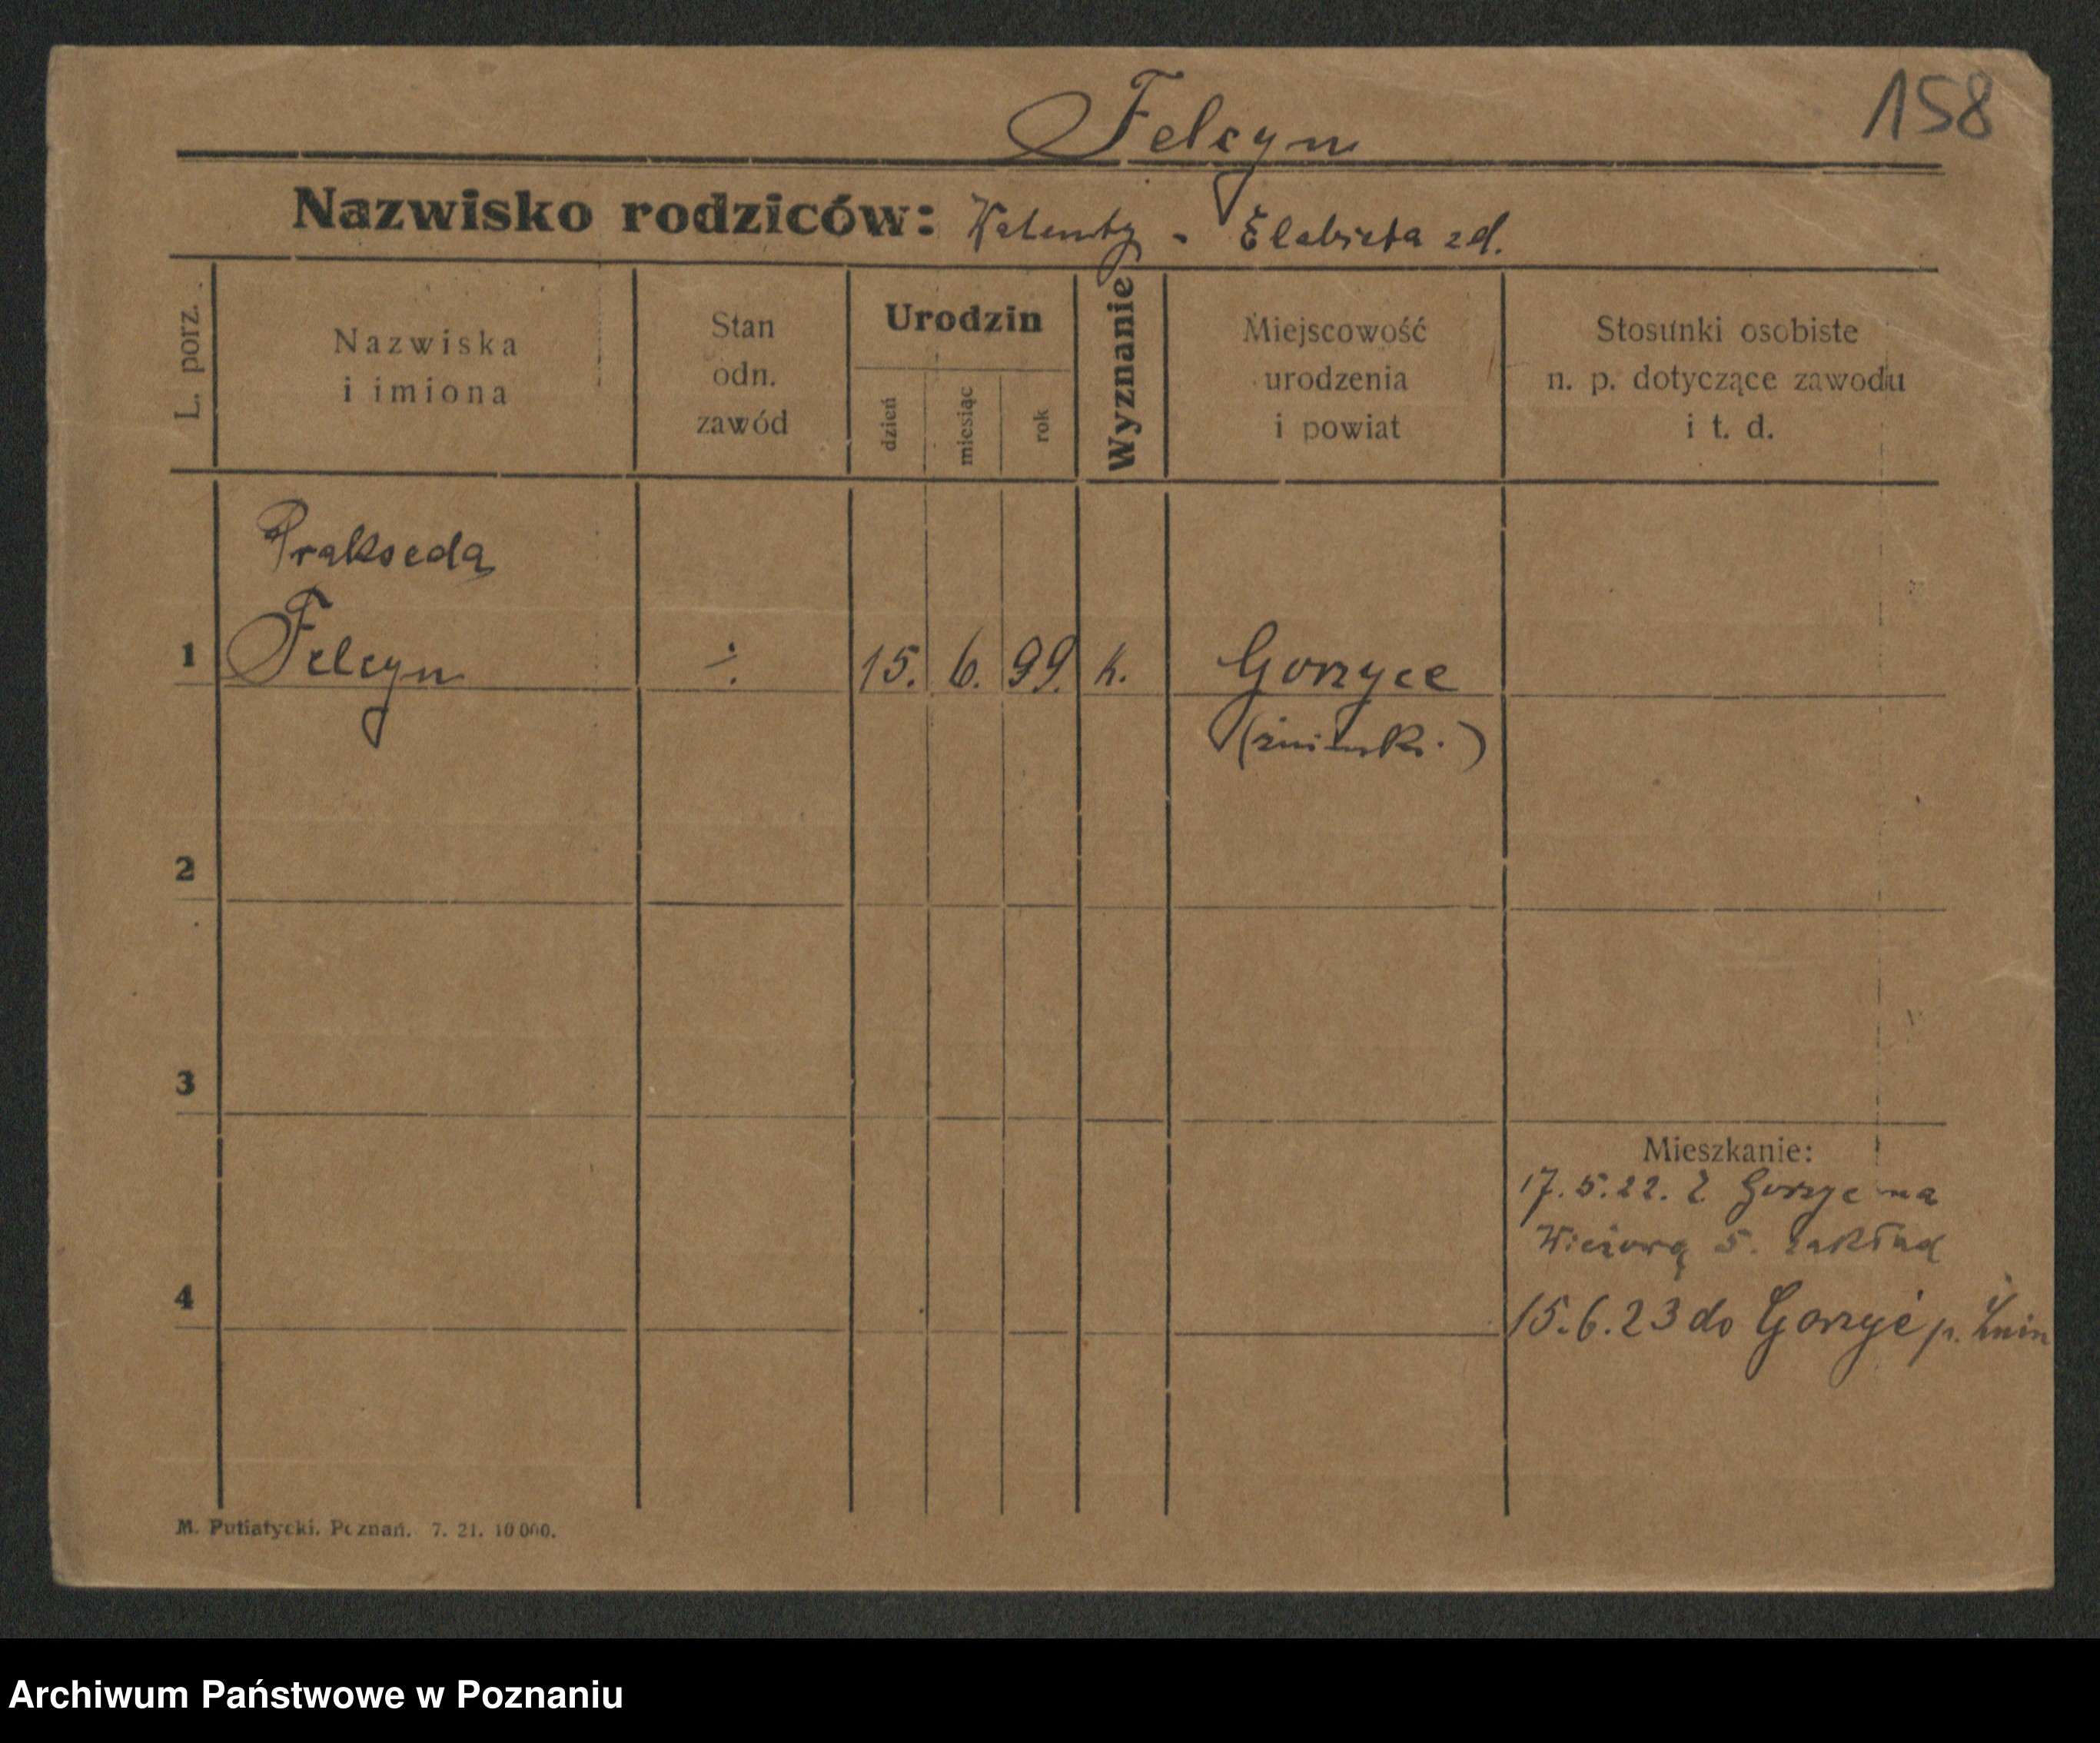 158
Felcyn
Nazwisko rodziców: Walenty - Elżbieta zd.
L. porz.
Nazwiska
i imiona
Stan
odn.
zawód
Urodzin
dzień
miesiąc
rok
Wyznanie
Miejscowość
urodzenia
i powiat
Stosunki osobiste
n. p. dotyczące zawodu
i t. d.
Prakseda
1 Felcyn ÷ 15. 6. 99. k. Gorzyce
2
3
Mieszkanie:
17.5.22. Z Gorzyc na
Wieżową 5. zakład
4
15.6.23 do Gorzyć p. Żnin
M. Putiatycki. Poznań. 7. 21. 10 000.
Archiwum Państwowe w Poznaniu